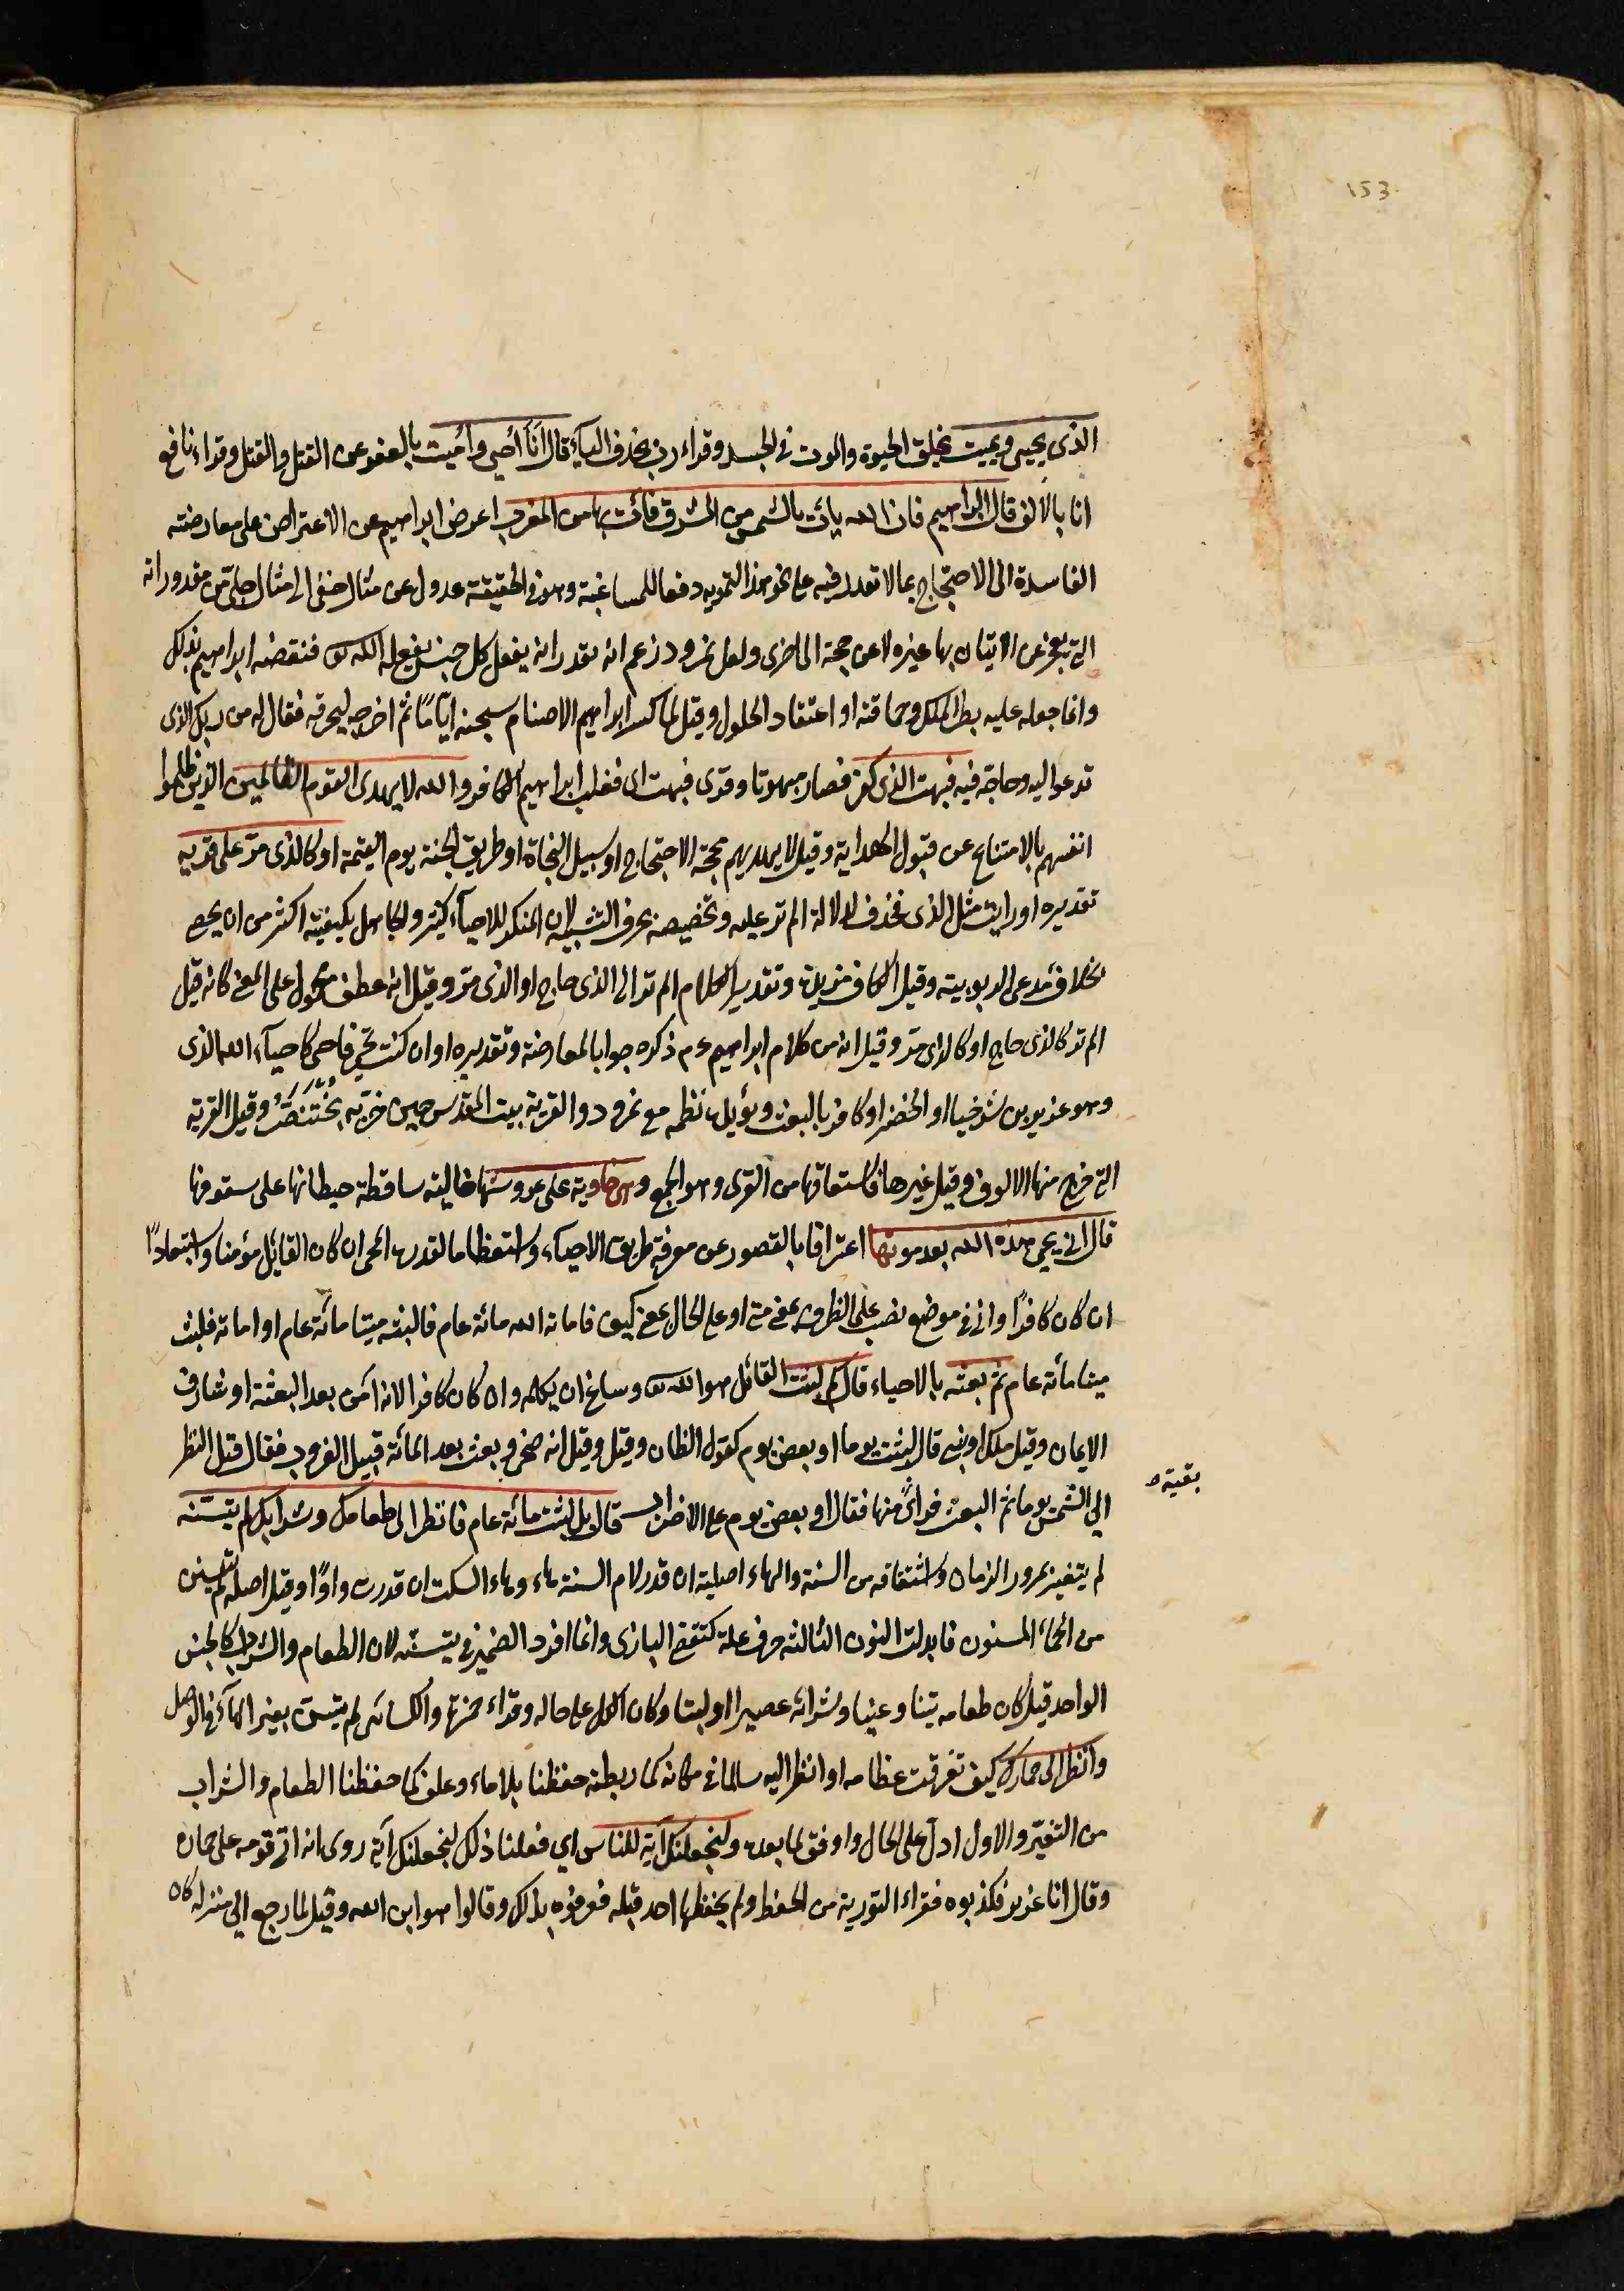 153
الذى يحيى ويميت بخلق الحيوة والموت فى الجسد وقراء رب بحذف الياء قال أنا أحيى وأميت بالعفو عن القتل والقتل وقراء نافع
انا بالالف قال ابراهيم فان الله ياتى بالشمس من المشرق فأت بها من المغرب اعرض ابراهيم عن الاعتراض على معارضته
الفاسدة الى الاحتجاج بما لا تقدر فيه على نحو هذا التمويه دفعا للمشاغبة وهو فى الحقيقة عدول عن مثال خفى الى مثال جلى من مقدوراته
التى يعجز عن الاتيان بها غيره لا عن حجة الى اخرى ولعل نمرود زعم انه يقدر ان يفعل كل جنس يفعله الله تع فنقضه ابراهيم بذلك
وانما جعله عليه بطر الملك وحماقته او اعتقاد الحلول وقيل لما كسر ابراهيم الاصنام سجنه اياما ثم اخرجه ليحرقه فقال له من ربك الذى
تدعوا اليه وحاجه فيه فبهت الذى كفر فصار مبهوتا وقرى فبهت اى فغلب ابراهيم الكافر والله لا يهدى القوم الظالمين الذين ظلموا
انفسهم بالامتناع عن قبول الهداية وقيل لا يهديهم محجة الاحتجاج او سبيل النجاة او طريق الجنة يوم القيمة او كالذى مر على قرية
تقديره او رايت مثل الذى فحذف لدلالة الم تر عليه وتخصيصه بحرف التشبيه لان المنكر للاحيآء كثير والجاهل بكيفيته اكثر من ان يحصى
بخلاف مدعى الربوبيته وقيل الكاف مزيدة وتقدير الكلام الم تر الى الذى حاج او الذى مر وقيل انه عطف محمول على المعنى كانه قيل
الم تر كالذى حاج او كالذى مر وقيل انه من كلام ابراهيم ءم ذكره جوابا لمعارضته وتقديره او ان كنت تحيى فاحى كاحيآء الله الذى
وهو عزير بن شرخيا او الخضر او كافر بالبعث ويؤيده نظمه مع نمرود والقرية بيت المقدس حين خربه بُخْتَنَصَّرُ وقيل القرية
التى خرج منها الالوف وقيل غيرها فاشتقاقها من القرى وهو الجمع وهى خاوية على عروشها خالية ساقطة حيطانها على سقوفها
قال انى يحيى هذه الله بعد موتها اعترافا بالقصور عن معرفة طريق الاحياء واستعظاما لقدرة المحى ان كان القائل مؤمنا واستبعادًا
ان كان كافرًا وانى فى موضع نصب على الظرف بمعنى متى او على الحال بمعنى كيف فاماته الله مائة عام فالبثه ميتا مائة عام او اماته فلبث
ميتا مائة عام ثم بعثه بالاحياء قال كم لبثت القائل هو الله تع وساغ ان يكلمه وان كان كافرا لانه آمن بعد البعثة او شارف
الايمان وقيل ملك او نبى قال لبثت يوما او بعض يوم كقول الظان وقيل وقيل انه ضحى وبعث بعد المائة قبيل الغروب فقال قبل النظر
الى الشمس يوما ثم البعث فراى منها فقال او بعض يوم على الاضراب قال بل لبثت مائة عام فانظر الى طعامك وشرابك لم يتسنه
بقية ص
لم يتغير بمرور الزمان واشتقاقه من السنة والهاء اصلية ان قدر لام السنة هاء وهاء السكت ان قدرت واوًا وقيل اصله لم يتسنن
من الحمأ المسنون فابدلت النون الثالثه حرف علة كتقضى البازى وانما افرد الضمير فى يتسنه لان الطعام والشراب كالجنس
الواحد قيل كان طعامه تينا وعنبا وشرابه عصيرا او لبنا وكان الكل على حاله وقراء حمزة والكسائى لم يتسن بغير الهآء فى الوصل
وانظر الى حمارك كيف تفرقت عظامه او انظر اليه سالما فى مكانه كما ربطته حفظنا بلا ماء وعلف كما حفظنا الطعام والشراب
من التغير والاول ادل على الحال واوفق لما بعده ولنجعلنك آية للناس اي فعلنا ذلك لنجعلنك آية روى انه اتى قومه على حماره
وقال انا عزير فكذبوه فقراء التورية من الحفظ ولم يحفظها احد قبله فعرفوه بذلك وقالوا هو ابن الله وقيل لما رجع الى منزله كان